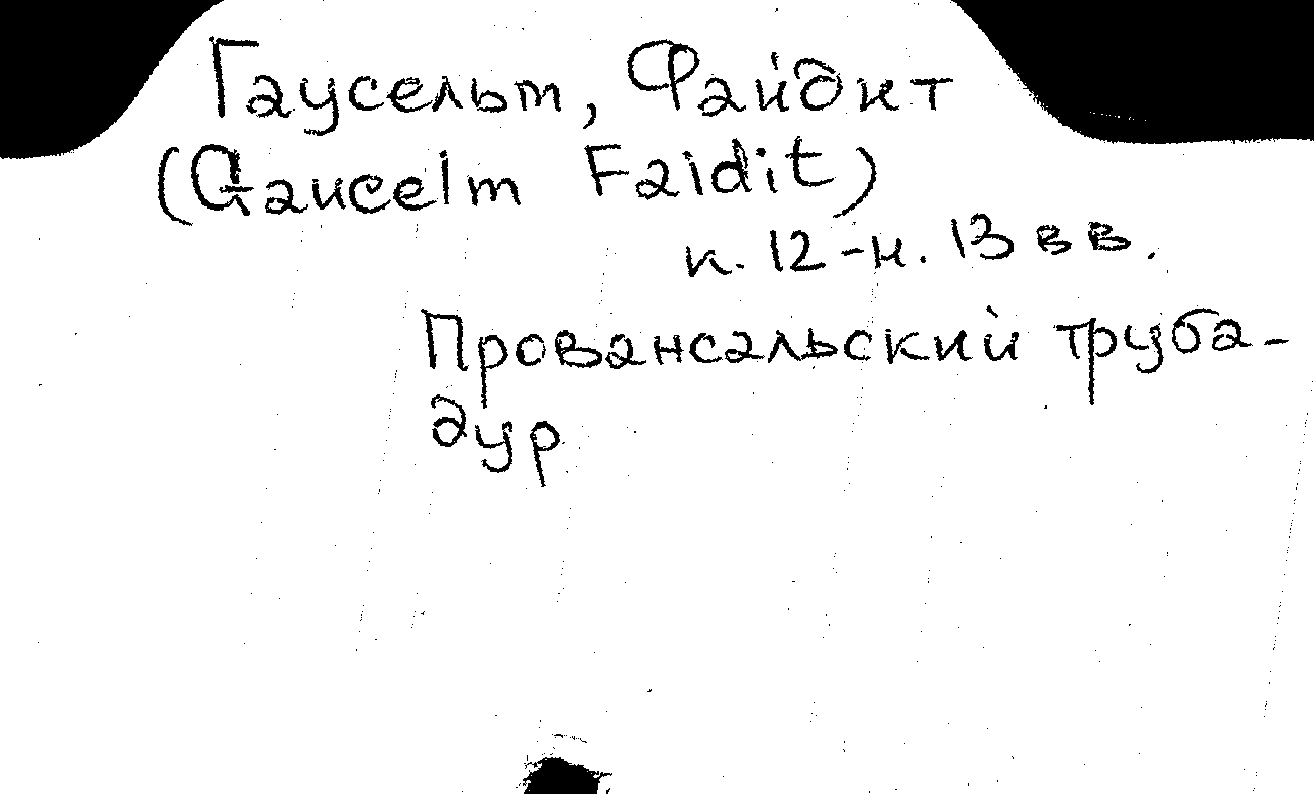 Гаусельм, Файдит
(Gaucelm Faidit)
к. 12 - н. 13 вв.
Провансальский труба-
дур